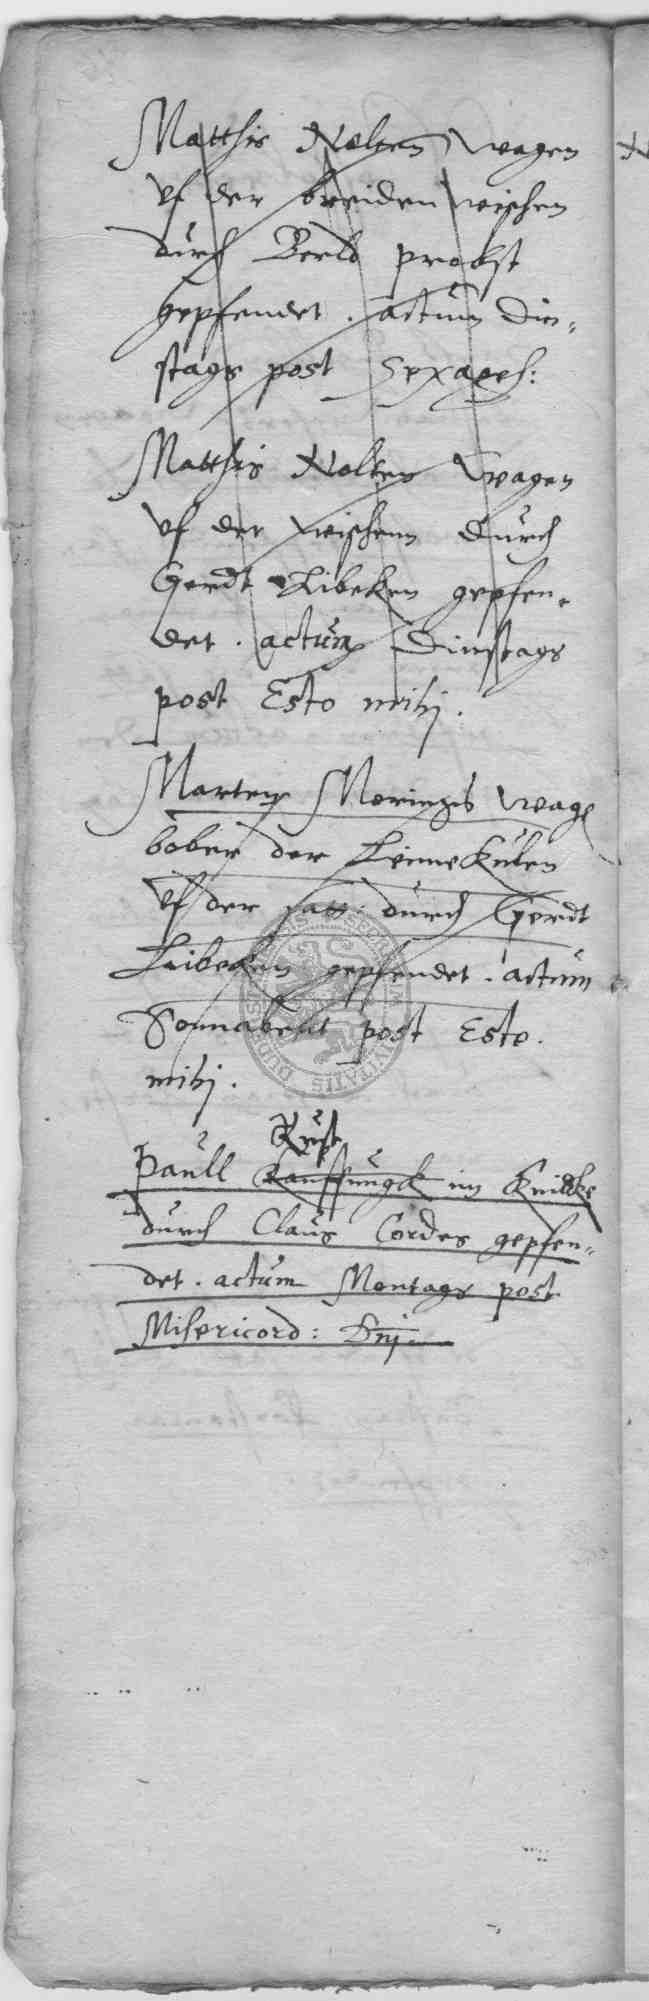 Matthis Nolten wagen
vf der breiden wischen
durch Berld probst
gepfendet. actum Din-
stags post Sexages:
Matthis Nolten wagen
vf der wischenn durch
Gerdt Libeken gepfen-
det. actum Dinstags
post Esto mihj.
Marten Moringes wage
bober der Leimekulen
vf der satt durch Gerdt
Libeken gepfendet. actum
Sonnabent post Esto
mihj.
Rust
Paull Kauffungk im Knicke
durch Claus Cordes gepfen-
det. actum Montags post
Misericord: Dnj.